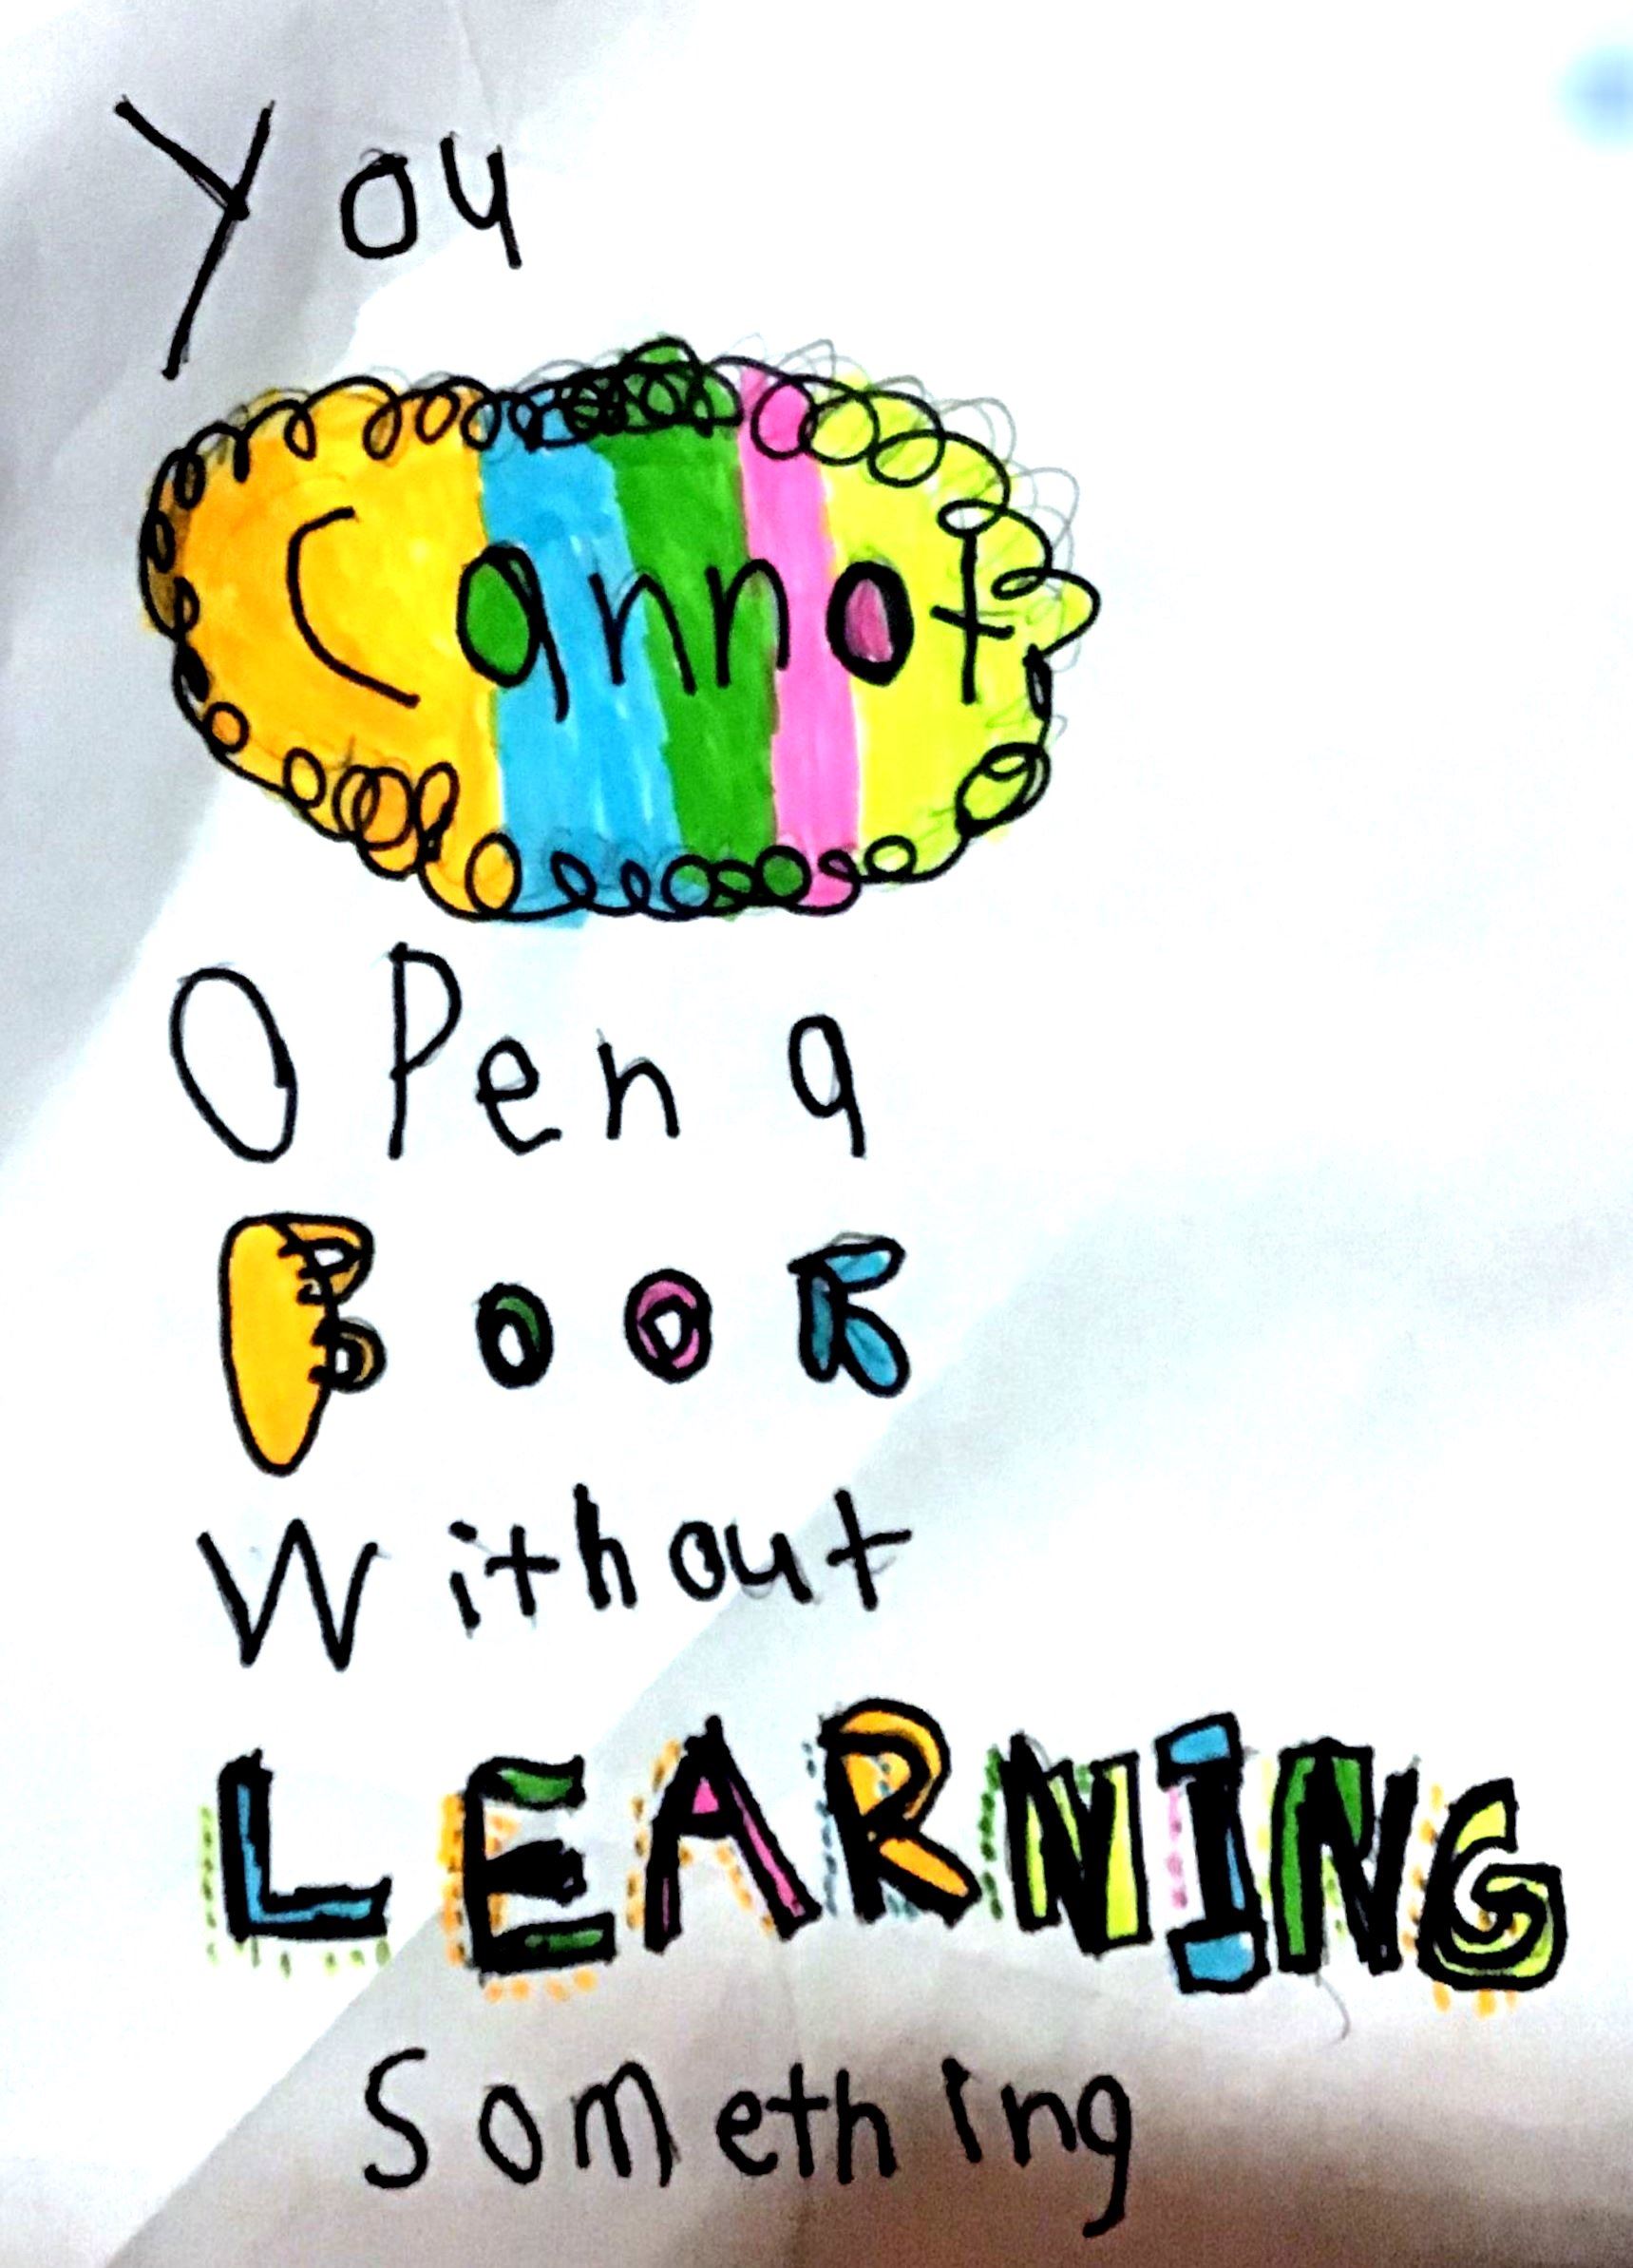 You
Cannot
Open a
Book
Without
LEARNING
Something